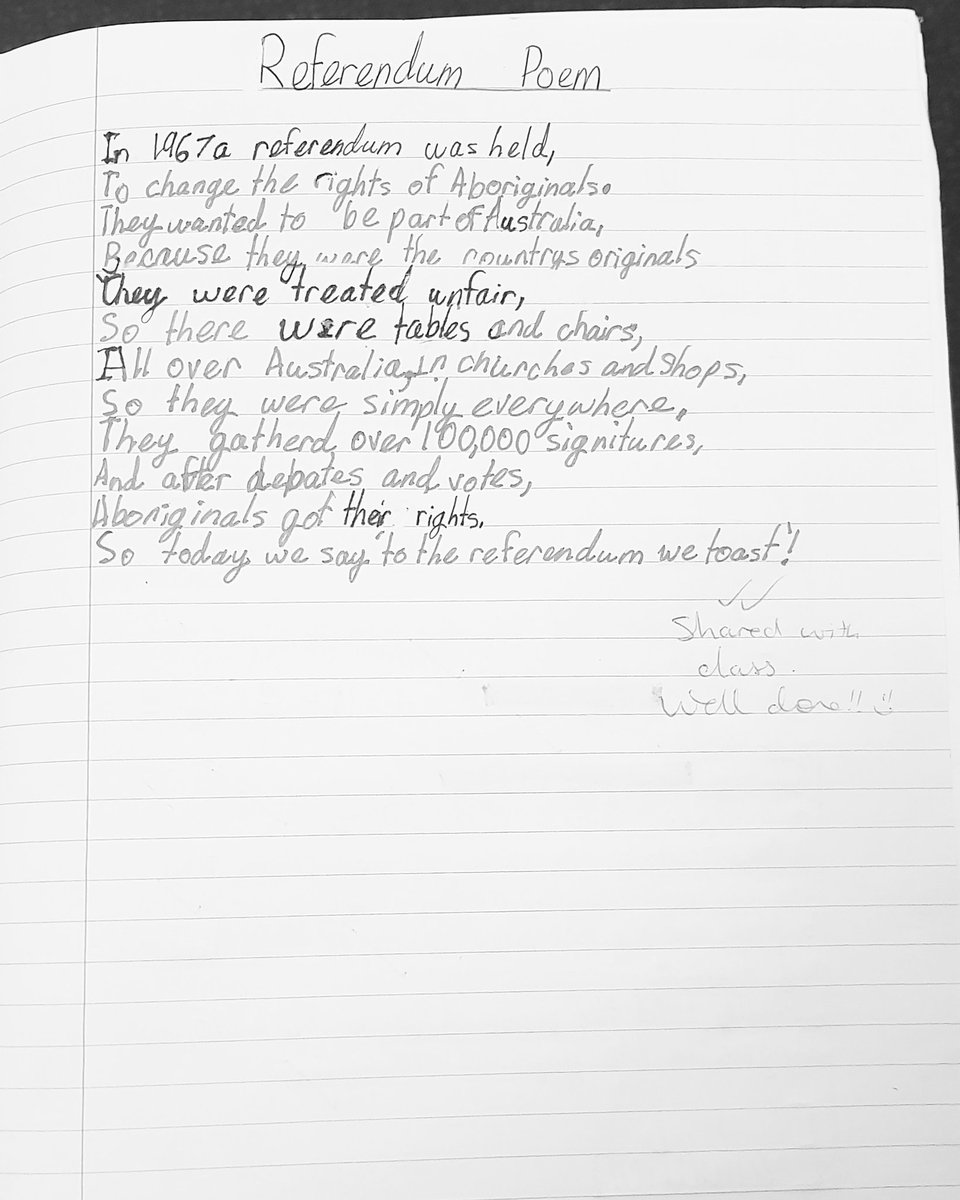 Referendum Poem
In 1967 a referendum was held,
To change the rights of Aboriginals.
They wanted to be part of Australia,
Because they were the countrys originals
They were treated unfair,
So there were tables and chairs,
All over Australia, in churches and shops,
So they were simply everywhere.
They gatherd over 100,000 signitures,
And after debates and votes,
Aboriginals got their rights.
So today we say "to the referendum we toast"!
Shared with
class.
Well done!!